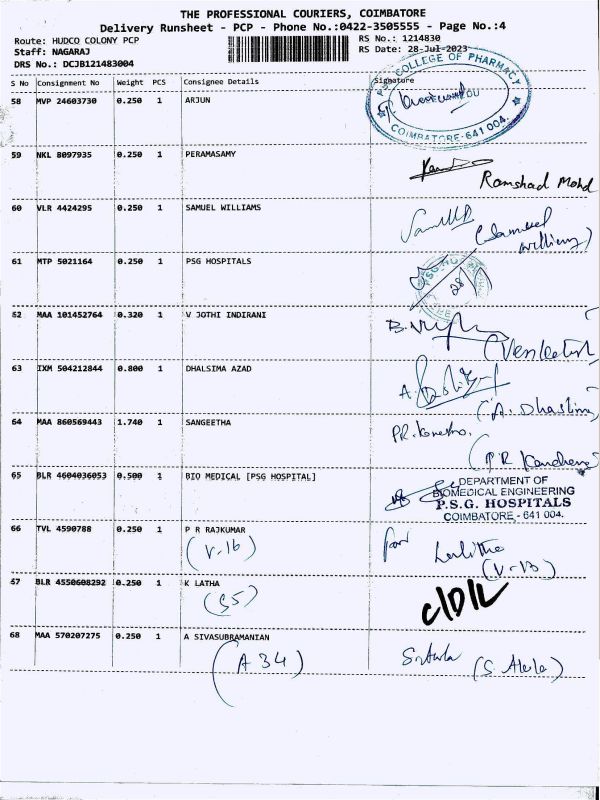 THE PROFESSIONAL COURIERS, COIMBATORE
Delivery Runsheet - PCP - Phone No.:0422-3505555 - Page No.:4
Route: HUDCO COLONY PCP
RS No.: 1214830
Staff: NAGARAJ
RS Date: 28-Jul-2023
DRS No.: DCJB121483004
S No Consignment No Weight PCS Consignee Details Signature
58 MVP 24603730 0.250 1 ARJUN
COLLEGE OF PHARMACY
COIMBATORE-641 004.
59 NKL 8097935 0.250 1 PERAMASAMY
Ramshad Mohd
60 VLR 4424295 0.250 1 SAMUEL WILLIAMS
(Samuel
williams)
61 MTP 5021164 0.250 1 PSG HOSPITALS
28
62 MAA 101452764 0.320 1 V JOTHI INDIRANI
63 IXM 504212844 0.800 1 DHALSIMA AZAD
64 MAA 860569443 1.740 1 SANGEETHA
65 BLR 4604036053 0.500 1 BIO MEDICAL [PSG HOSPITAL]
DEPARTMENT OF
BIOMEDICAL ENGINEERING
P.S.G. HOSPITALS
COIMBATORE - 641 004.
66 TVL 4590788 0.250 1 P R RAJKUMAR
(V-16)
Lalitha
67 BLR 4550608292 0.250 1 K LATHA
(S5)
C/D/L
68 MAA 570207275 0.250 1 A SIVASUBRAMANIAN
(A 34)